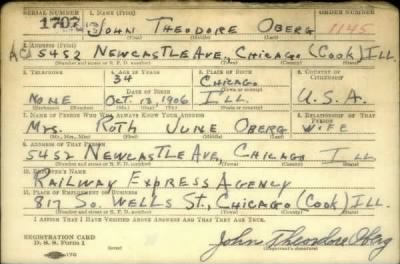 SERIAL NUMBER 1. NAME (Print) ORDER NUMBER
1707 JOHN THEODORE OBERG 1145
2. ADDRESS (Print)
AC 5452 NEWCASTLE AVE, CHICAGO (COOK) ILL.
(Number and street or R. F. D. number) (Town) (County) (State)
3. TELEPHONE 4. AGE IN YEARS 5. PLACE OF BIRTH 6. COUNTRY OF CITIZENSHIP
34 CHICAGO
DATE OF BIRTH (Town or county)
NONE OCT. 13, 1906 ILL. U.S.A.
(Exchange) (Number) (Mo.) (Day) (Yr.) (State or country)
7. NAME OF PERSON WHO WILL ALWAYS KNOW YOUR ADDRESS 8. RELATIONSHIP OF THAT PERSON
MRS. RUTH JUNE OBERG WIFE
(Mr., Mrs., Miss) (First) (Middle) (Last)
9. ADDRESS OF THAT PERSON
5452 NEWCASTLE AVE, CHICAGO ILL
(Number and street or R. F. D. number) (Town) (County) (State)
10. EMPLOYER'S NAME
RAILWAY EXPRESS AGENCY
11. PLACE OF EMPLOYMENT OR BUSINESS
817 SO. WELLS ST., CHICAGO (COOK) ILL.
(Number and street or R. F. D. number) (Town) (County) (State)
I AFFIRM THAT I HAVE VERIFIED ABOVE ANSWERS AND THAT THEY ARE TRUE.
REGISTRATION CARD
D. S. S. Form 1 John Theodore Oberg
(Registrant's signature)